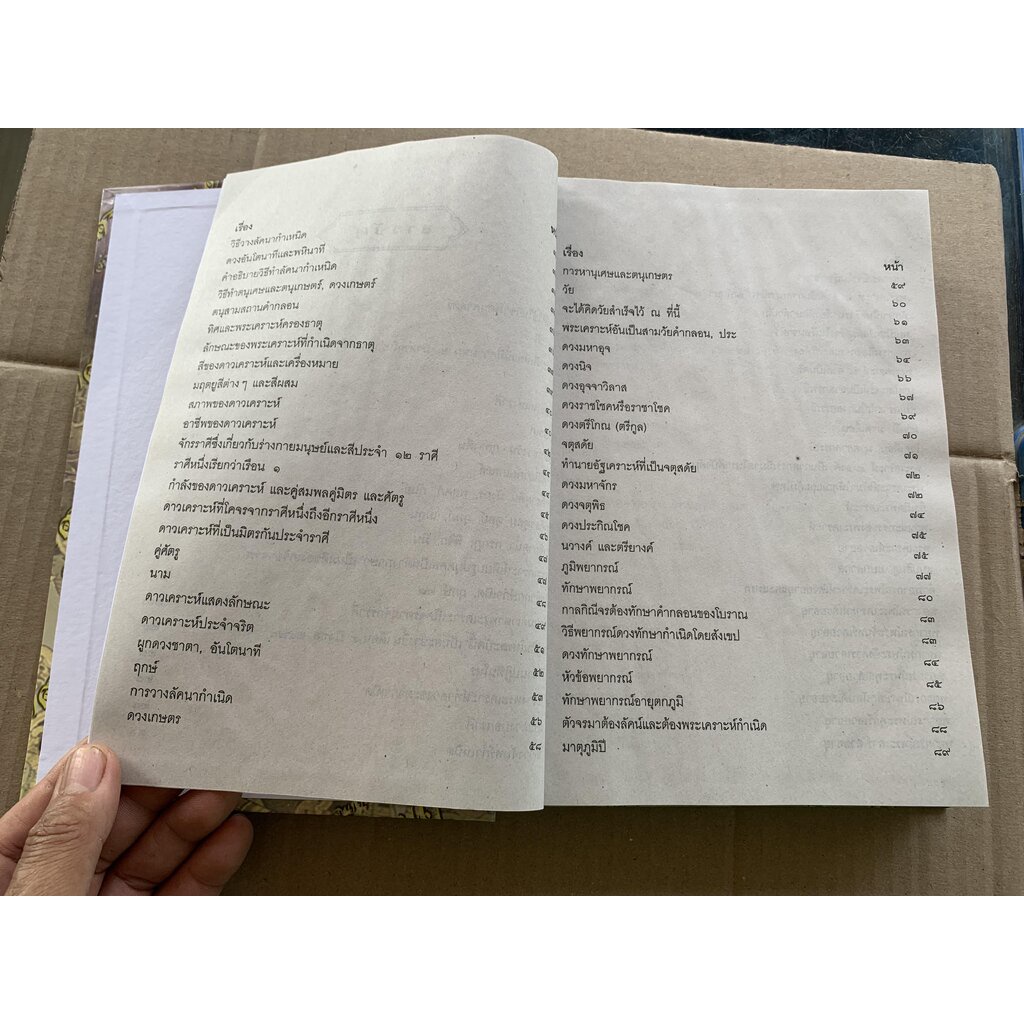 เรื่อง
วิธีวางลัคนากำเหนิด
ดวงอันโตนาทีและพหินาที
คำอธิบายวิธีทำลัคนากำเหนิด
วิธีทำตนุเศษและตนุเกษตร์, ดวงเกษตร์
ตนุสามสถานคำกลอน
ทิศและพระเคราะห์ครองธาตุ
ลักษณะของพระเคราะห์ที่กำเนิดจากธาตุ
สีของดาวเคราะห์และเครื่องหมาย
มฤตยูสีต่างๆ และสีผสม
สภาพของดาวเคราะห์
อาชีพของดาวเคราะห์
จักรราศีซึ่งเกี่ยวกับร่างกายมนุษย์และสีประจำ ๑๒ ราศี
ราศีหนึ่งเรียกว่าเรือน ๑
กำลังของดาวเคราะห์ และคู่สมพลคู่มิตร และศัตรู
ดาวเคราะห์ที่โคจรจากราศีหนึ่งถึงอีกราศีหนึ่ง
ดาวเคราะห์ที่เป็นมิตรกันประจำราศี
คู่ศัตรู
นาม
ดาวเคราะห์แสดงลักษณะ ๔๘
ดาวเคราะห์ประจำจริต ๔๙
ผูกดวงชาตา, อันโตนาที ๕๑
ฤกษ์ ๕๒
การวางลัคนากำเนิด ๕๓
ดวงเกษตร ๕๖
๕๘
เรื่อง หน้า
การหานุเศษและตนุเกษตร ๕๙
วัย ๖๐
จะได้คิดวัยสำเร็จไว้ ณ ที่นี้ ๖๑
พระเคราะห์อันเป็นสามวัยคำกลอน, ประ ๖๓
ดวงมหาอุจ ๖๔
ดวงนิจ ๖๖
ดวงอุจจาวิลาส ๖๗
ดวงราชโชคหรือราชาโชค ๖๙
ดวงตรีโกณ (ตรีกูล) ๗๐
จตุสดัย ๗๑
ทำนายอัฐเคราะห์ที่เป็นจตุสดัย ๗๒
ดวงมหาจักร ๗๒
ดวงจตุพิธ ๗๔
ดวงประกิณโชค ๗๕
นวางค์ และตรียางค์ ๗๕
ภูมิพยากรณ์ ๗๗
ทักษาพยากรณ์ ๘๐
กาลกิณีจรต้องทักษาคำกลอนของโบราณ ๘๓
วิธีพยากรณ์ดวงทักษากำเนิดโดยสังเขป ๘๓
ดวงทักษาพยากรณ์ ๘๔
หัวข้อพยากรณ์ ๘๕
ทักษาพยากรณ์อายุตกภูมิ ๘๖
ตัวจรมาต้องลัคน์และต้องพระเคราะห์กำเนิด ๘๘
มาตุภูมิปี ๘๙